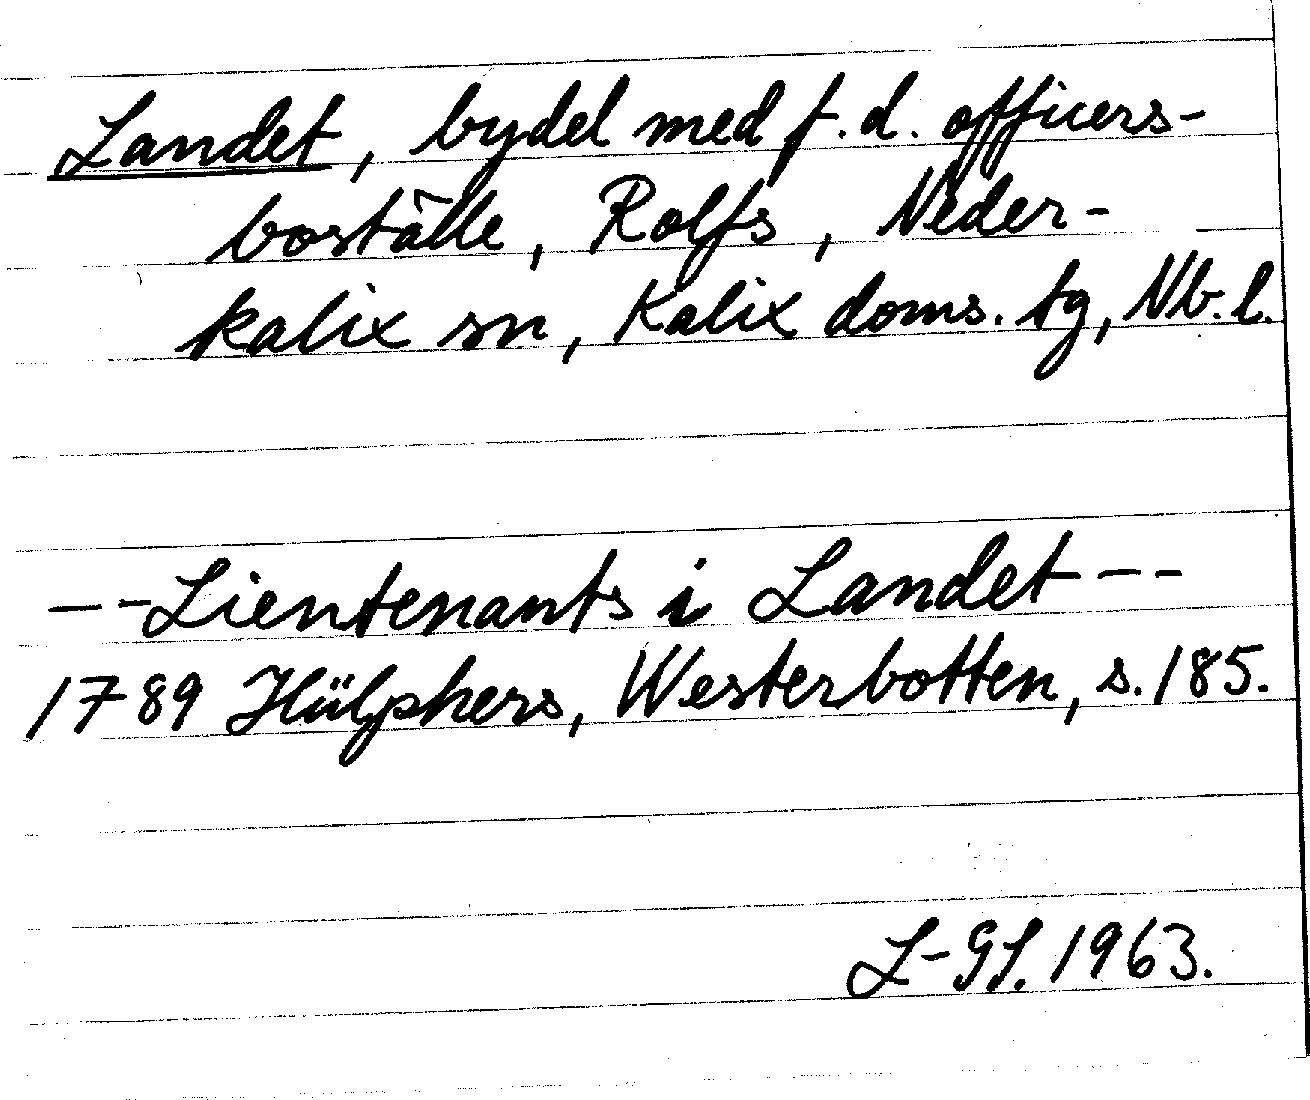 Landet, bydel med f.d. officers-
boställe, Rolfs, Neder-
kalix sn, Kalix doms. tg, Nb. l.
-- Lieutenants i Landet --
1789 Hülphers, Westerbotten, s. 185.
L-GS. 1963.